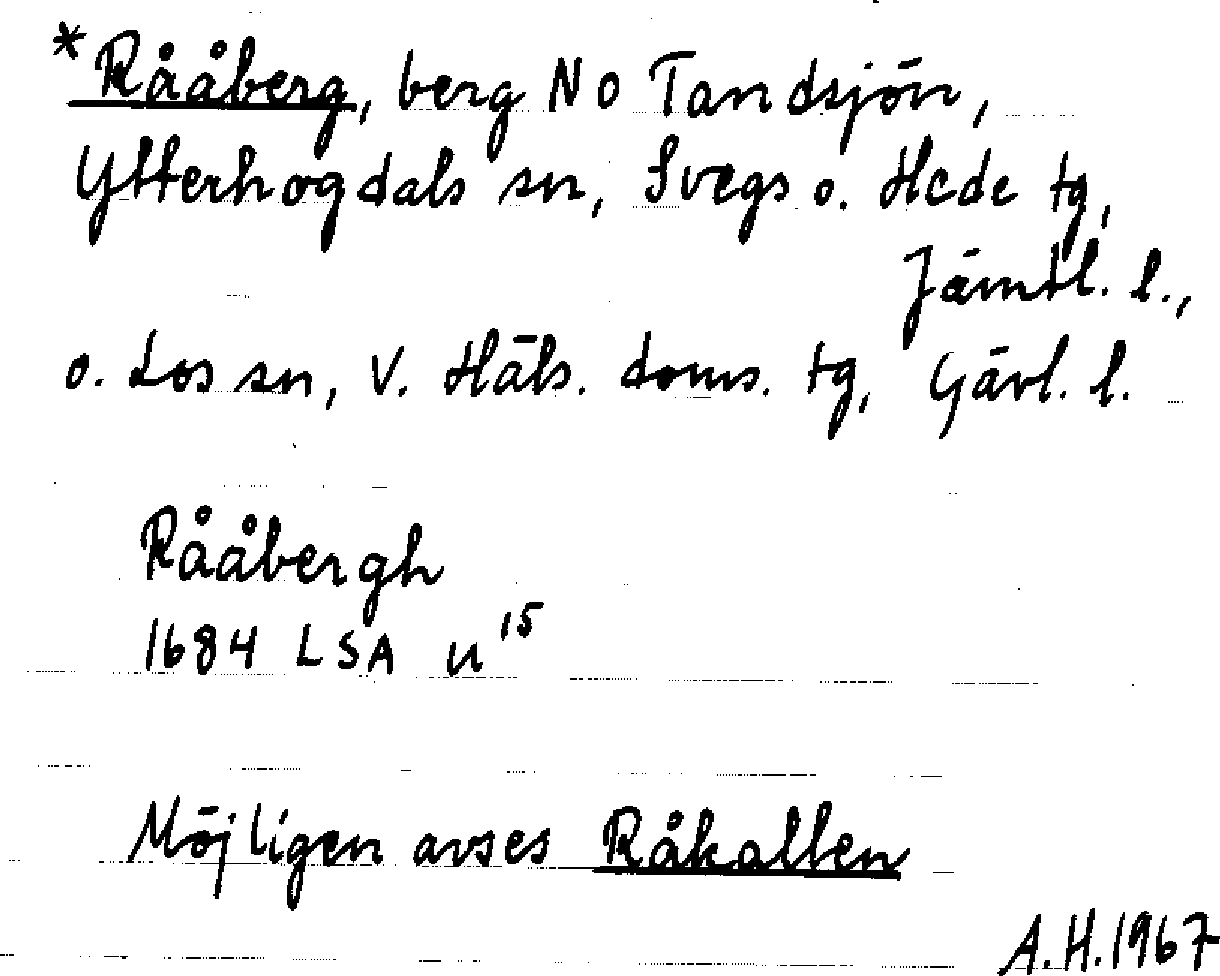 *Rååberg, berg NO Tandsjön,
Ytterhogdals sn, Svegs o. Hede tg,
Jämtl. l.,
o. Los sn, V. Häls. doms. tg, Gävl. l.
Rååbergh
1684 LSA u¹⁵
Möjligen avses Råkallen
A.H.1967